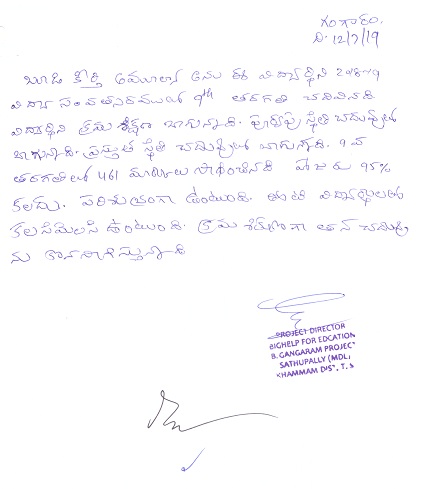 గంగారం,
ది. 12/7/19
బూడి కీర్తి అమూల్య అను ఈ విద్యార్థిని 2018-19
విద్యా సంవత్సరములో 9th తరగతి చదివినది
విద్యార్థిని క్రమశిక్షణ బాగున్నది. పూర్వపు స్థితి చదువులో
బాగున్నది. ప్రస్తుత స్థితి చదువులో బాగున్నది. 9వ
తరగతిలో 461 మార్కులు సాధించినది హాజరు 95%
కలదు. పరిశుభ్రంగా ఉంటుంది. తోటి విద్యార్థులతో
కలసిమెలసి ఉంటుంది. క్రమశిక్షణగా తన చదువు
ను కొనసాగిస్తున్నది
PROJECT DIRECTOR
BIGHELP FOR EDCATION
B. GANGARAM PROJECT
SATHUPALLY (MDL)
KHAMMAM DIST, T.S